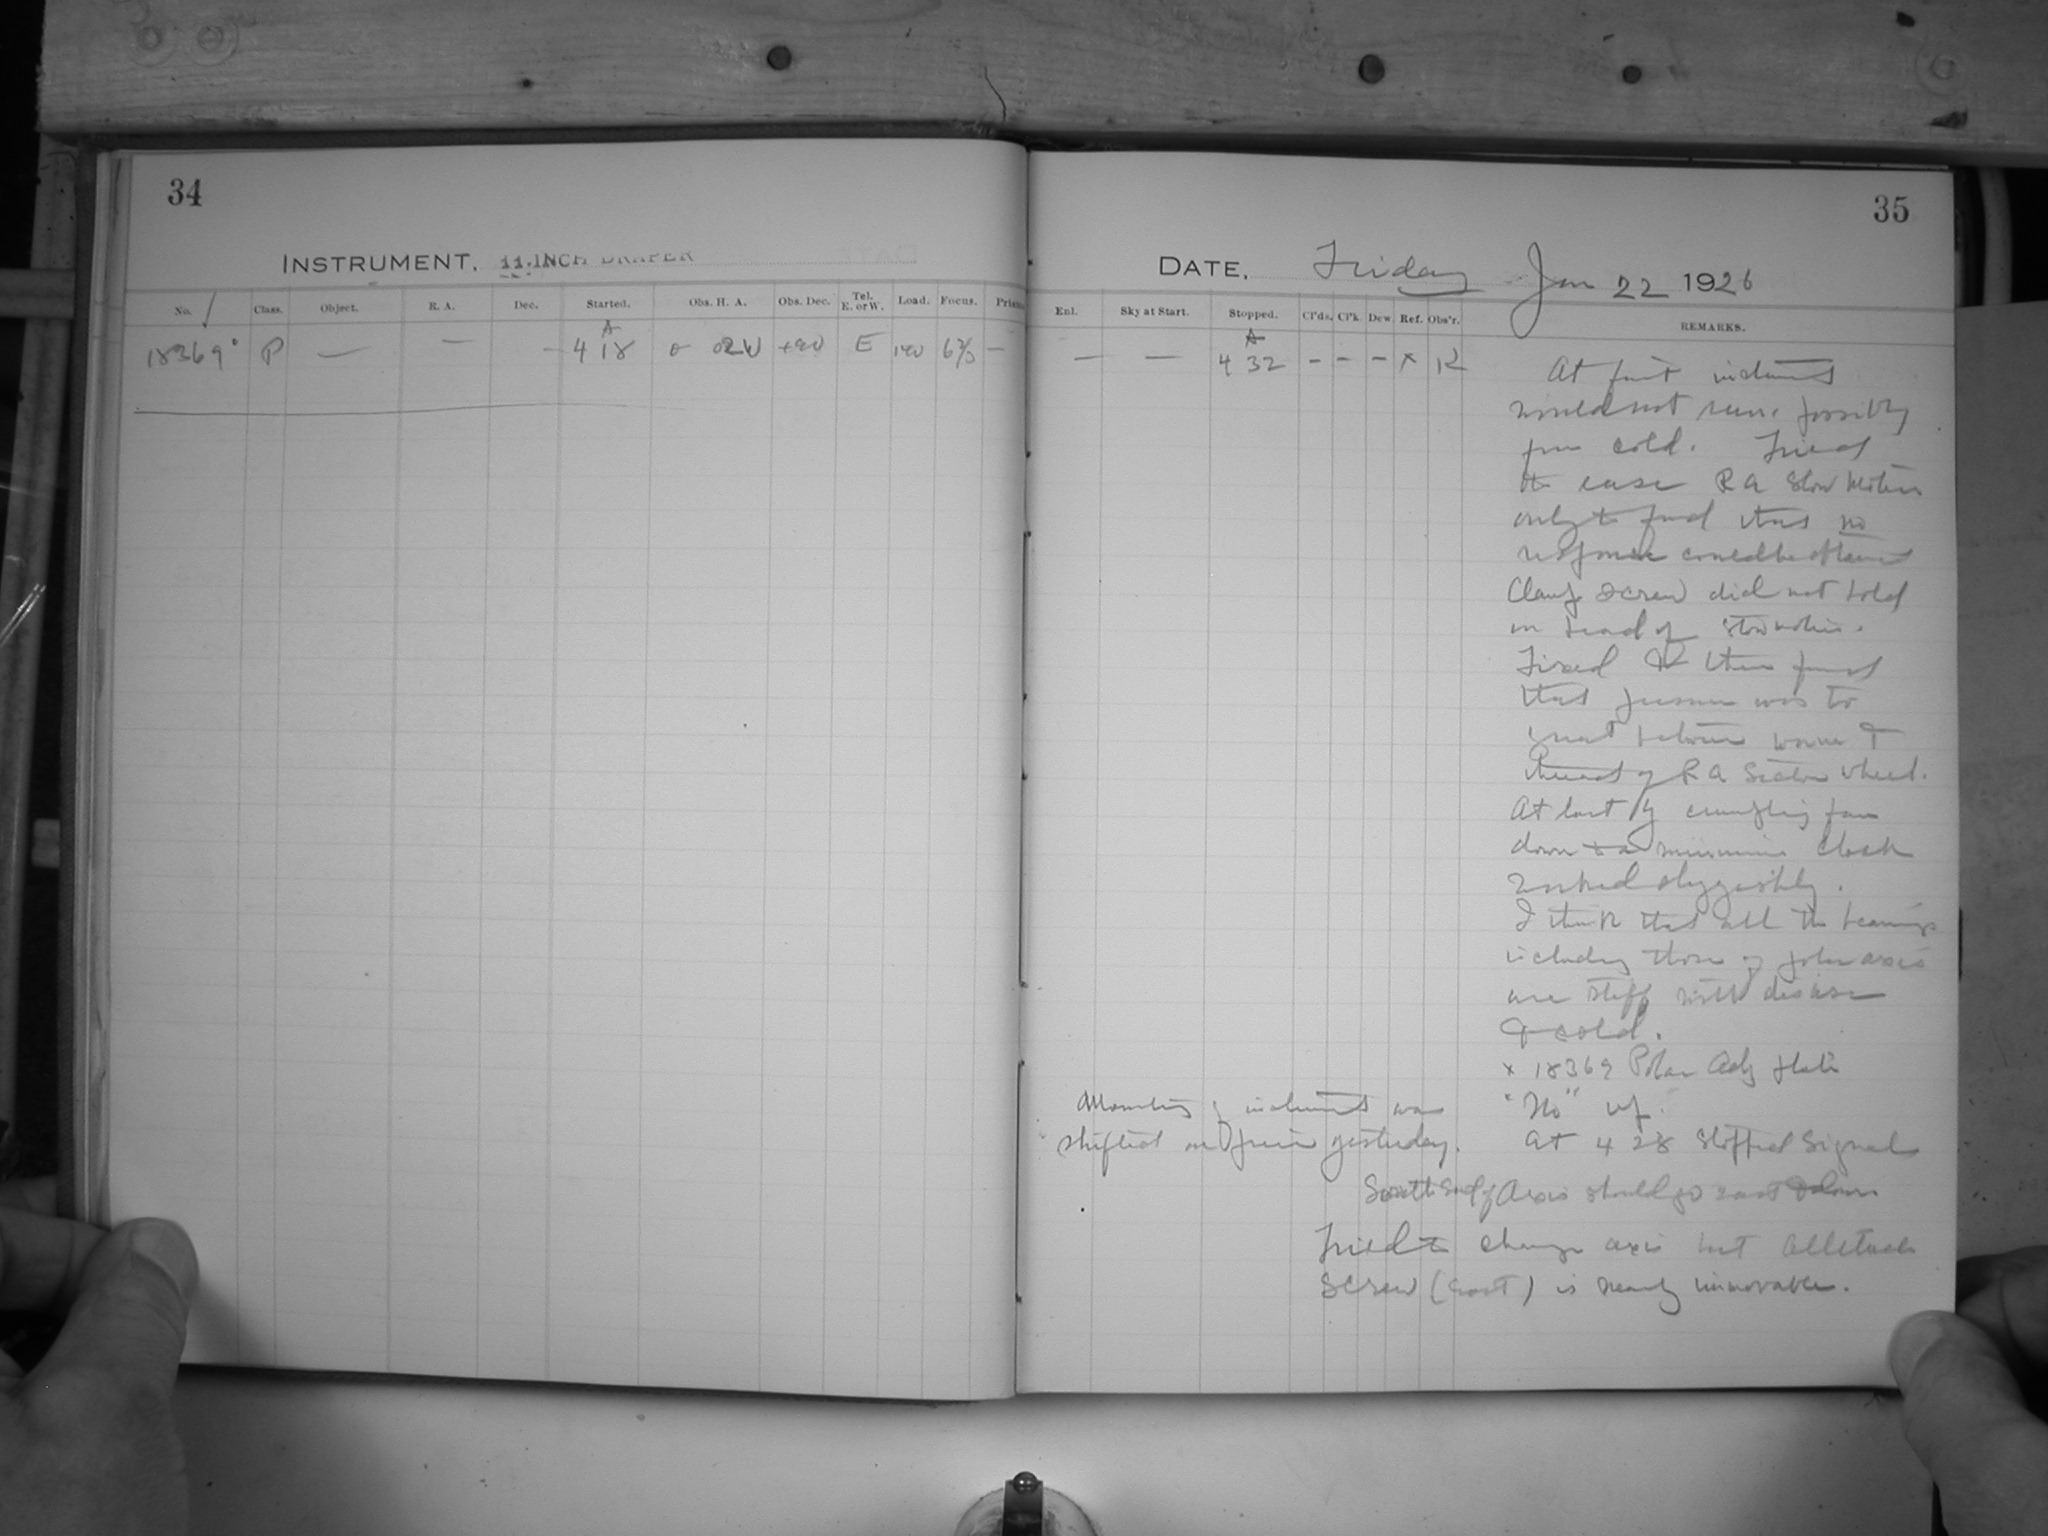 34
INSTRUMENT, 11-INCH DRAPER
No. Class. Object. R. A. Dec. Started. Obs. H. A. Obs. Dec. Tel. E. or W. Load. Focus.
18369 P — — — A 4 18 +90 E 140 —
35
DATE, Friday Jan 22 1926
Enl. Sky at Start. Stopped. Cl'ds. Cl'k. Dew. Ref. Obs'r. REMARKS.
— — A 4 32 - - - x R
At first instrument
would not run, possibly
from cold. Tried
to ease R A Slow Motion
only to find that no
response could be obtained
Clamp screw did not hold
on head of slow motion.
Fixed & then found
that pressure was to
great between worm &
thread of R A Sector wheel.
At last by crumpling fan
down to a minimum clock
worked sluggishly.
I think that all the bearings
including those of polar axis
are stiff with disuse
& cold.
x 18369 Polar Adj plate
"No" up.
Mounting of instrument was
shifted on pier yesterday.
At 4 28 Stopped Signal
South End of Axis should go east & down
Tried to change axis but
screw (east) is nearly immovable.